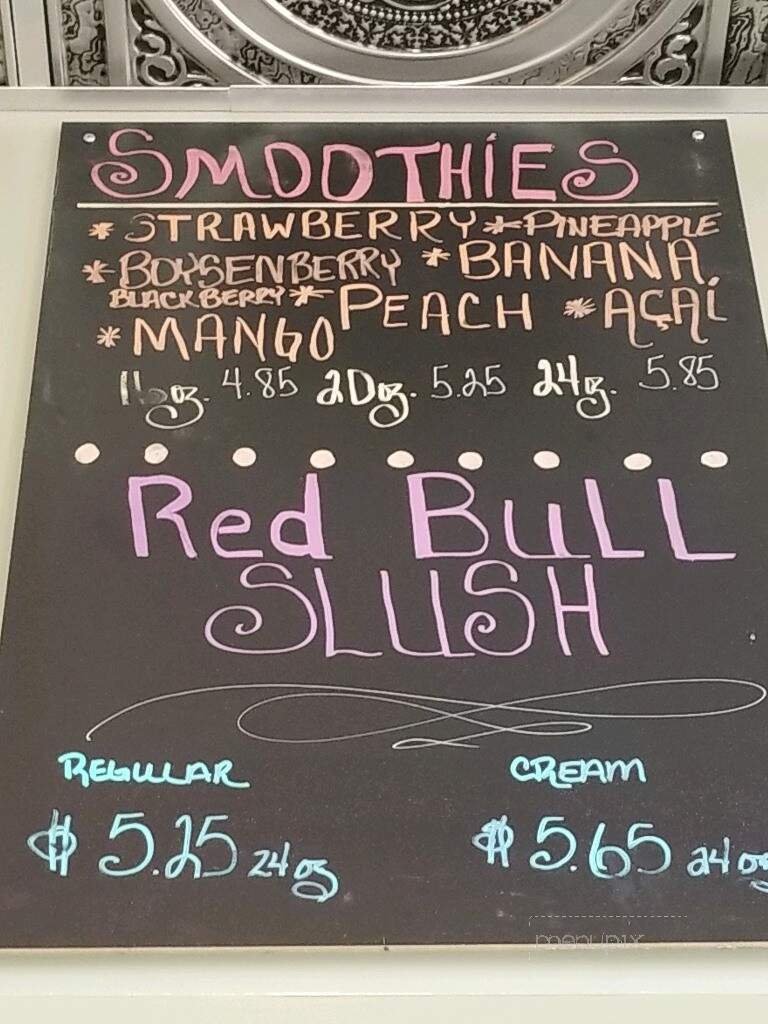 SMOOTHIES
* STRAWBERRY * PINEAPPLE
* BOYSENBERRY * BANANA
BLACKBERRY * PEACH * AÇAÍ
* MANGO
16oz. 4.85 20oz. 5.25 24oz. 5.85
Red BULL
SLUSH
REGULAR CREAM
$ 5.25 24oz $ 5.65 24oz
menupix